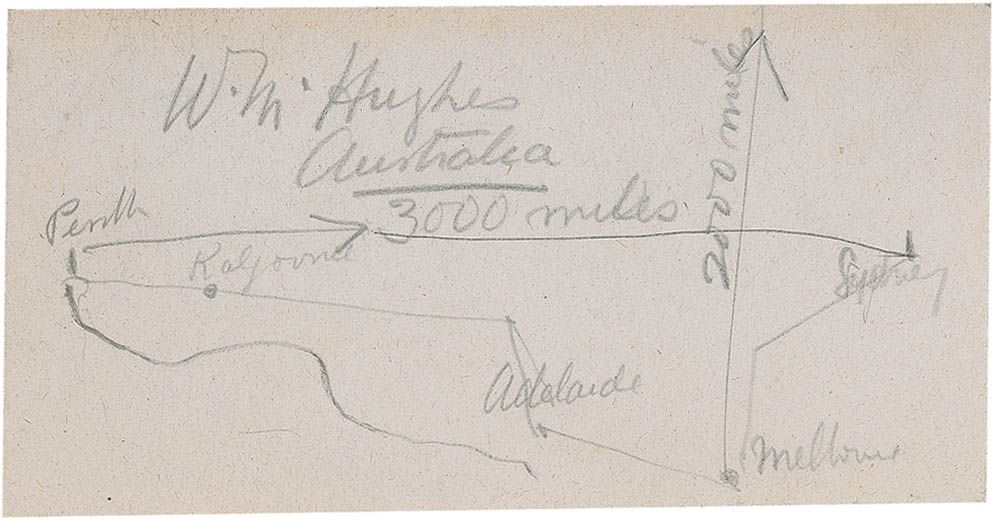 W. M. Hughes
Australia
3000 miles
2000 miles
Perth
Kalgoorlie
Sydney
Adelaide
Melbourne